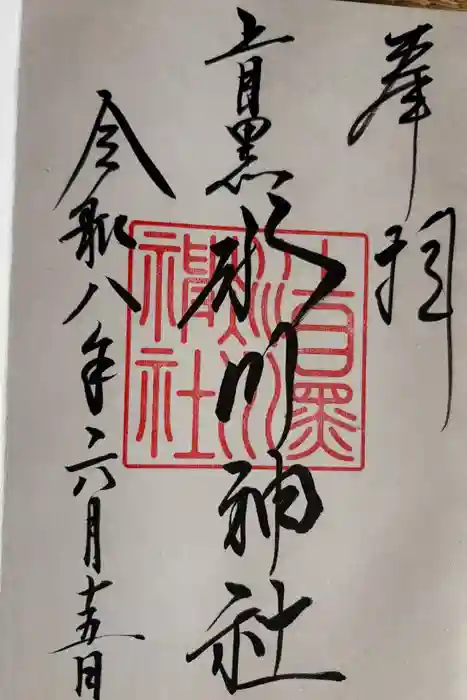 奉拝
上目黒氷川神社
令和八年六月十五日
上目黒
氷川
神社